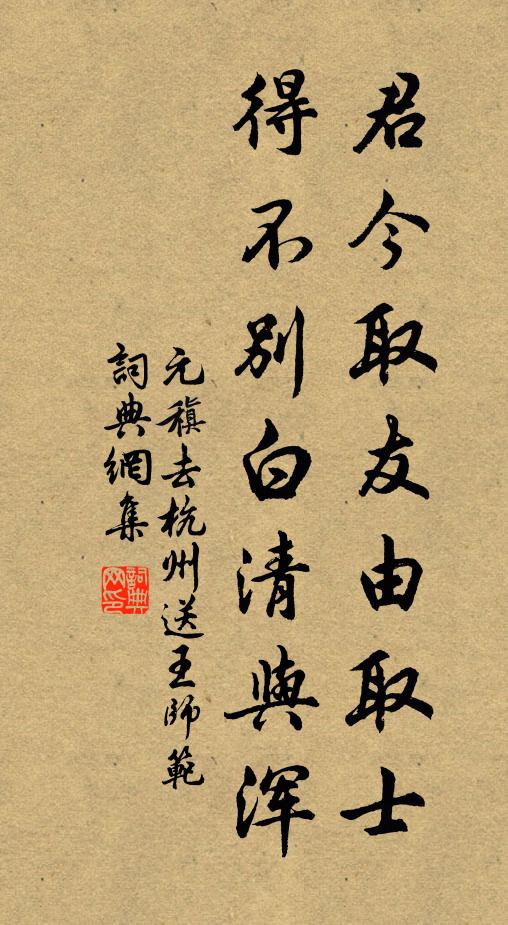 君今取友由取士
得不別白清與浑
元稹去杭州送王師範
詞典網集
詞典
网印